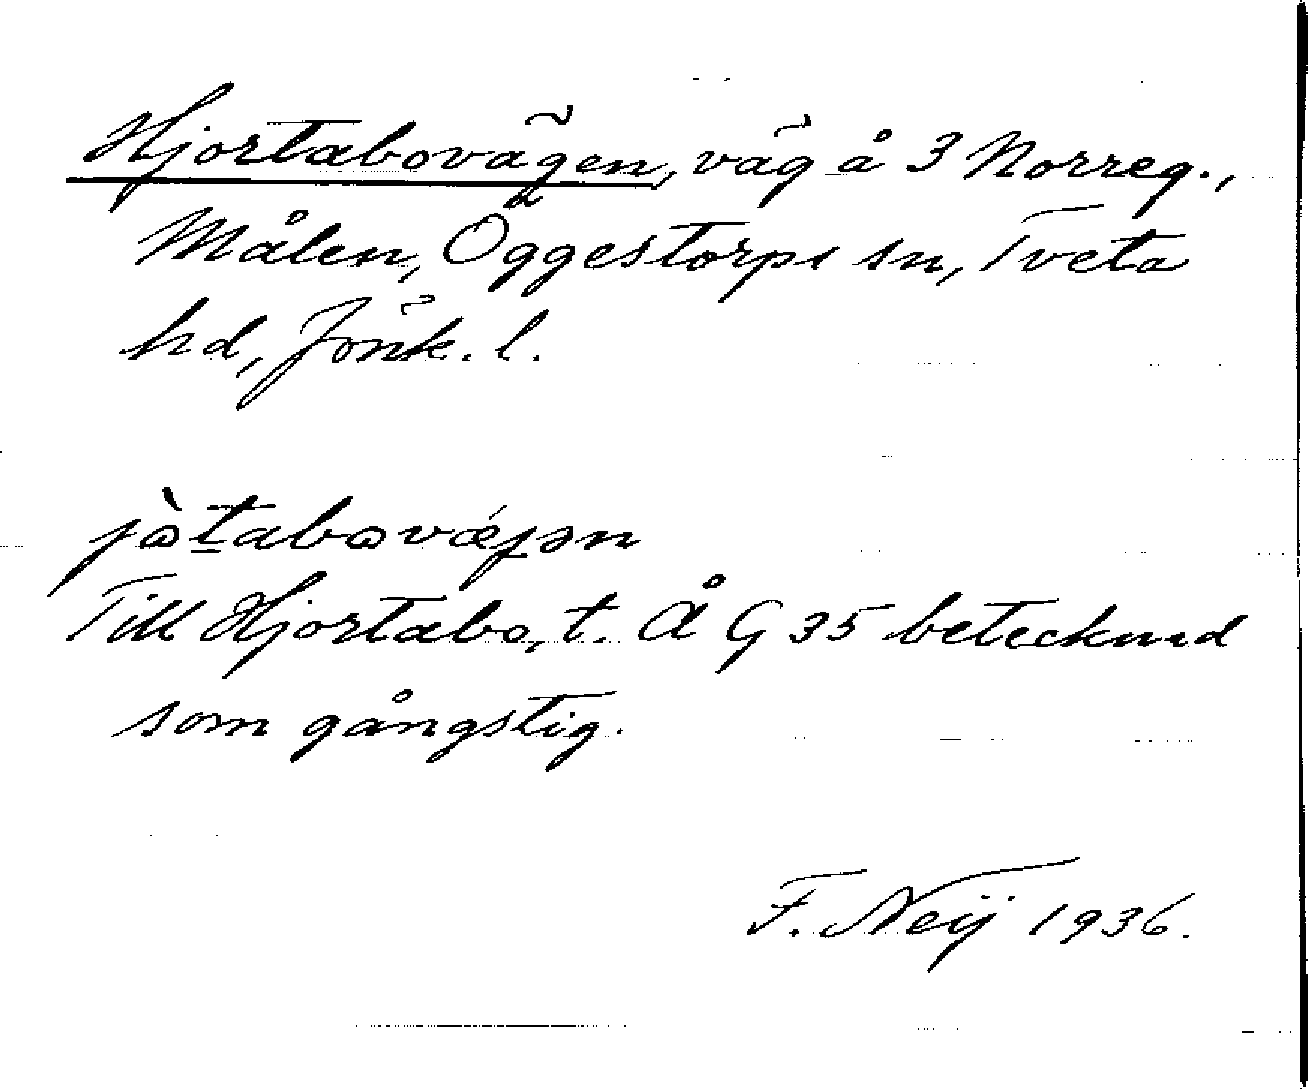 Hjortabovägen, väg å 3 Norreg.,
Målen, Öggestorps sn, Tveta
hd, Jönk. l.
jɷ̀tabɷvǽɟən
Till Hjortabo, t. Å G 35 betecknad
som gångstig.
F. Neij 1936.